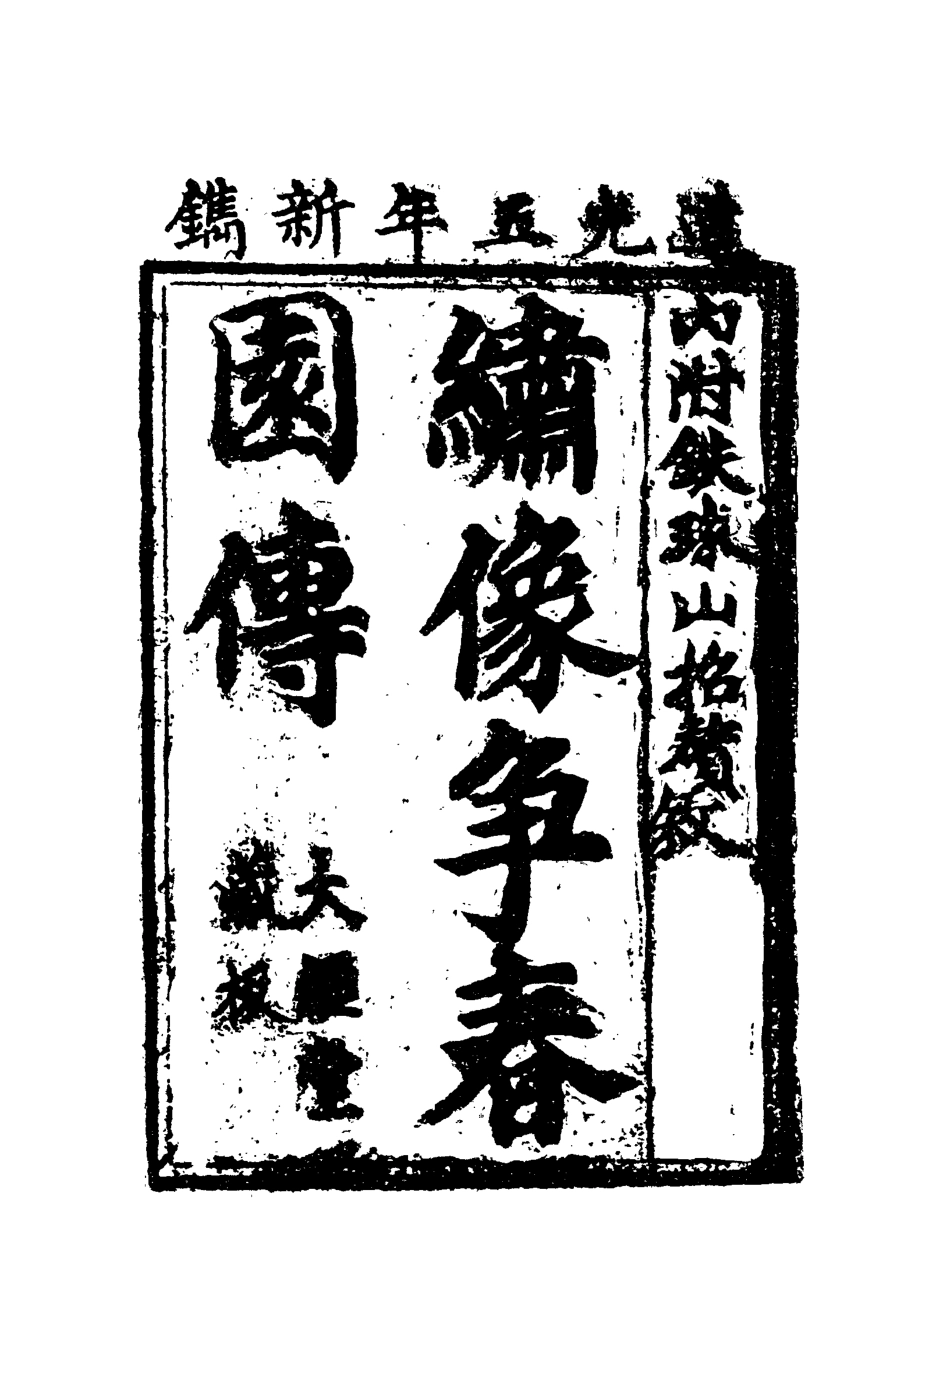 道光五年新鐫
內附鉄球山招贅欽
繡像争春
園傳
大
藏板